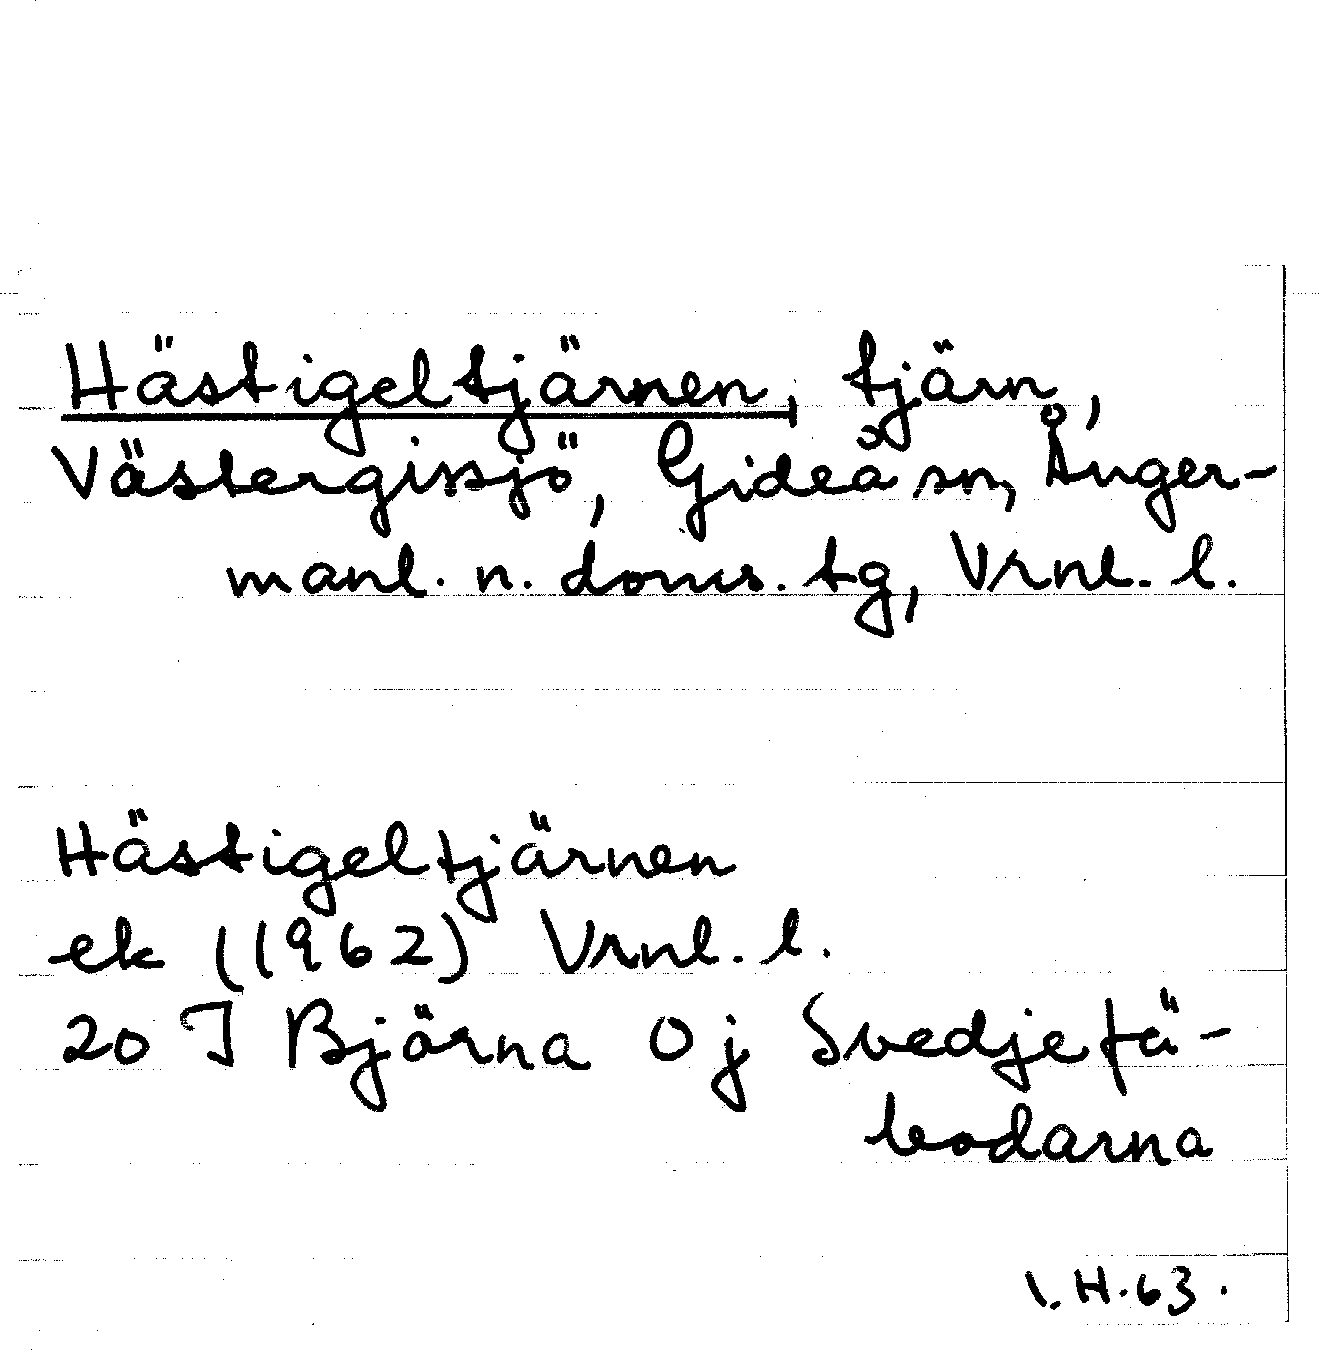 Hästigeltjärnen, tjärn,
Västergissjö, Gideå sn, Ånger-
manl. n. doms. tg, Vrnl. l.
Hästigeltjärnen
ek (1962) Vrnl. l.
20 I Björna 0 j Svedjefä-
bodarna
I. H. 63.